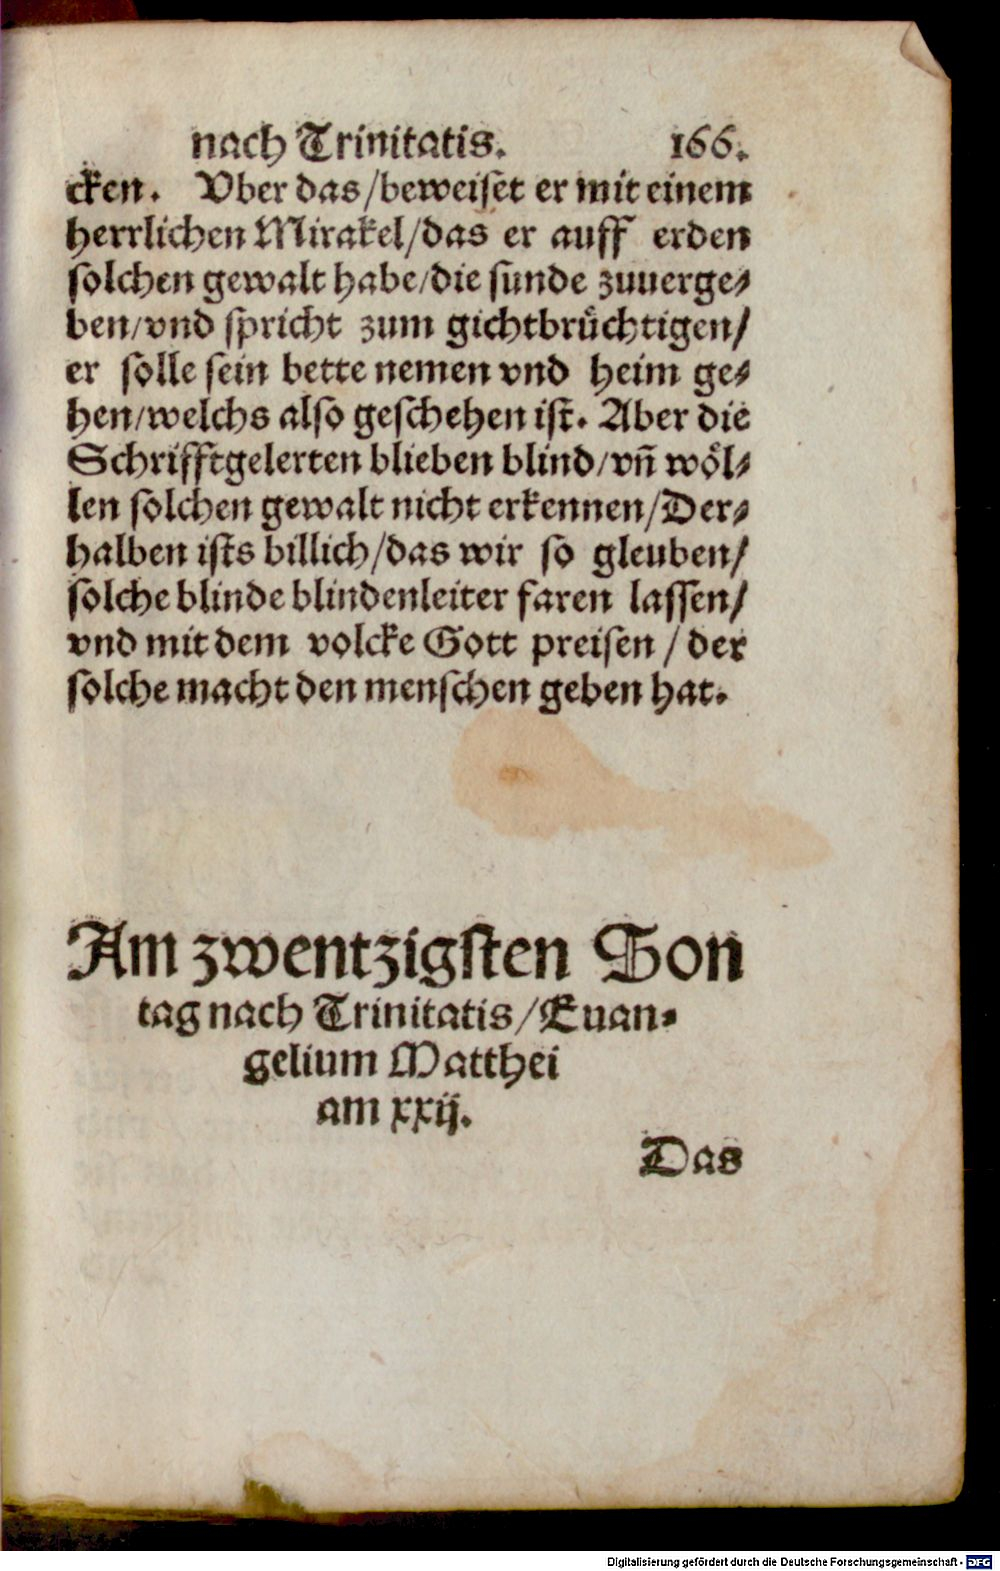 nach Trinitatis. 166.
cken. Vber das/beweiset er mit einem
herrlichen Mirakel/das er auff erden
solchen gewalt habe/die sunde zuuerge⸗
ben/vnd spricht zum gichtbrüchtigen/
er solle sein bette nemen vnd heim ge⸗
hen/welchs also geschehen ist. Aber die
Schrifftgelerten blieben blind/vn̄ wöl⸗
len solchen gewalt nicht erkennen/Der⸗
halben ists billich/das wir so gleuben/
solche blinde blindenleiter faren lassen/
vnd mit dem volcke Gott preisen / der
solche macht den menschen geben hat.
Am zwentzigsten Son
tag nach Trinitatis/Euan⸗
gelium Matthei
am xxij.
Das
Digitalisierung gefördert durch die Deutsche Forschungsgemeinschaft - DFG